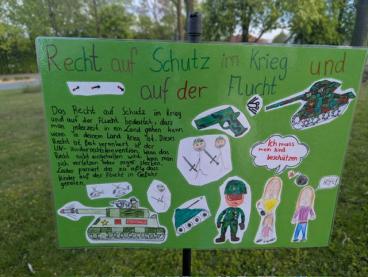 Recht auf Schutz im Krieg und
auf der Flucht
Das Recht auf Schutz im Krieg
und auf der Flucht bedeutet, dass
man jederzeit in ein Land gehen kann
wenn in deinem Land Krieg ist. Dieses
Recht ist fest verankert in der
UN-Kinderrechtskonvention. Wenn das
Recht nicht eingehalten wird, kann man
sich verletzen oder sogar sterben.
Leider passiert das zu häufig das
Kinder auf der Flucht in Gefahr
geraten.
Ich muss
mein Kind
beschützen